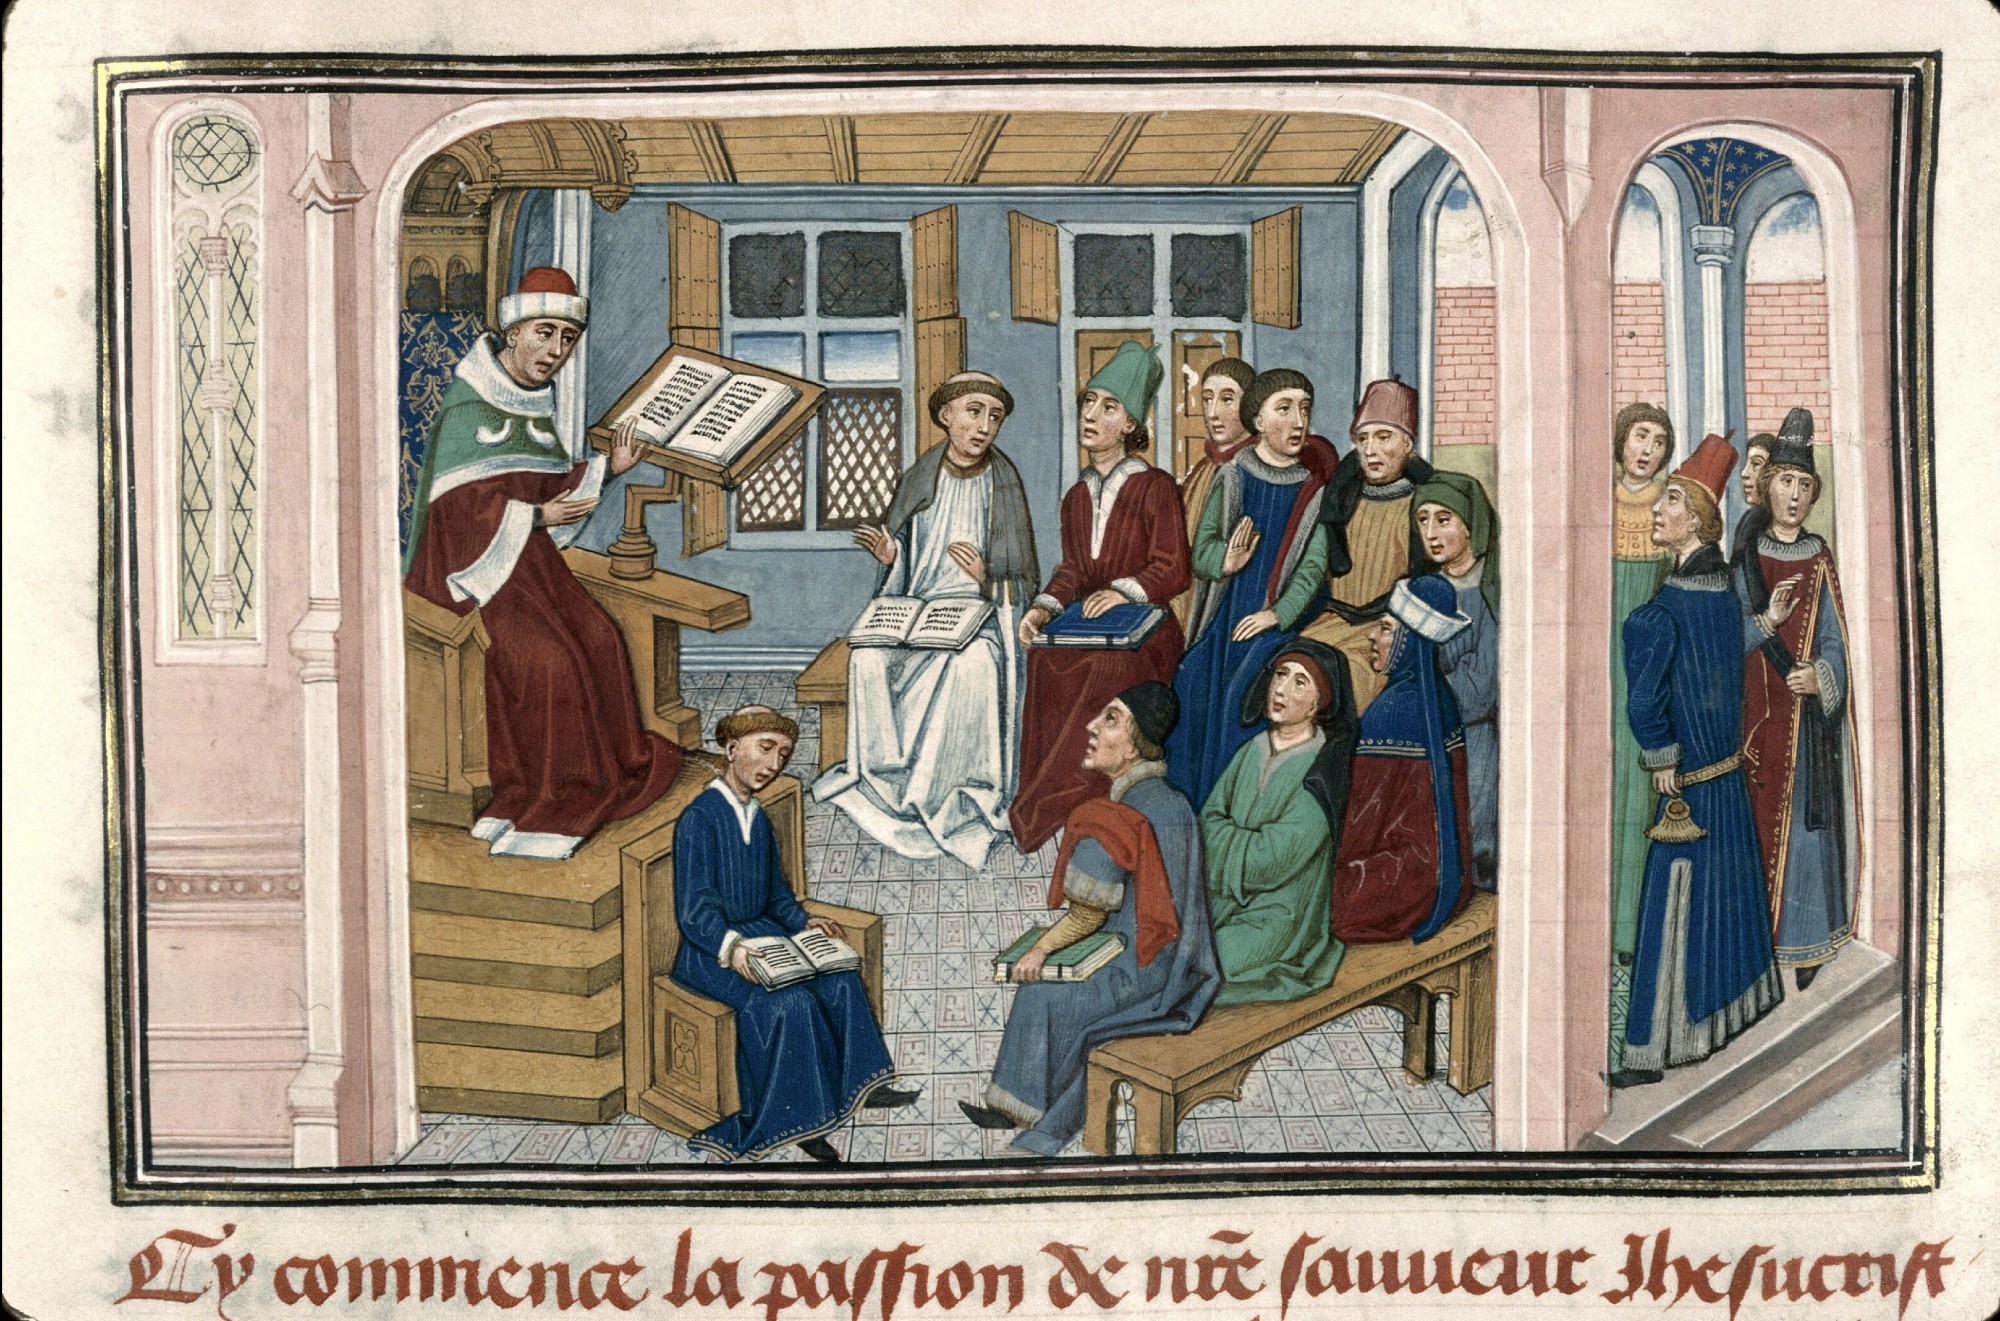 Cy commence la passion de nr̃e sauueur Jhesucrist